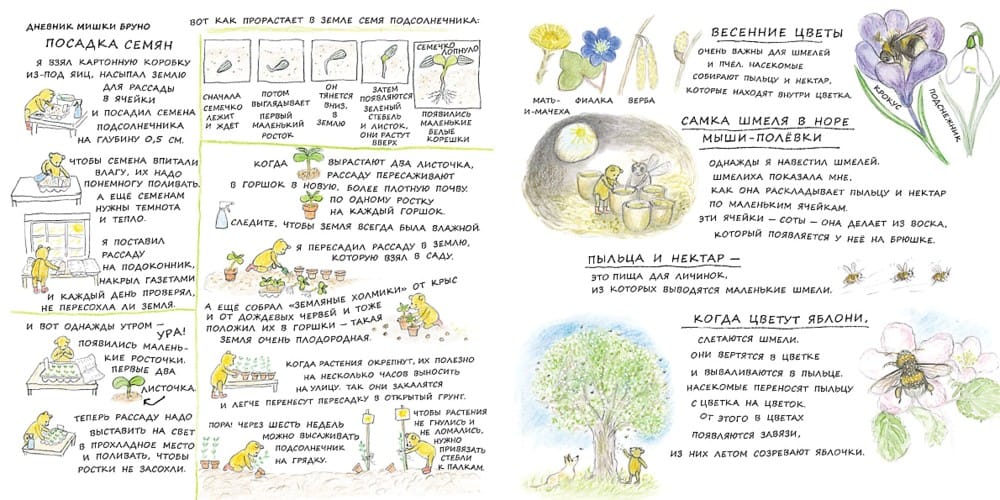 ДНЕВНИК МИШКИ БРУНО
ПОСАДКА СЕМЯН
Я ВЗЯЛ КАРТОННУЮ КОРОБКУ
ИЗ-ПОД ЯИЦ, НАСЫПАЛ ЗЕМЛЮ
ДЛЯ РАССАДЫ
В ЯЧЕЙКИ
И ПОСАДИЛ СЕМЕНА
ПОДСОЛНЕЧНИКА
НА ГЛУБИНУ 0,5 СМ.
ЧТОБЫ СЕМЕНА ВПИТАЛИ
ВЛАГУ, ИХ НАДО
ПОНЕМНОГУ ПОЛИВАТЬ.
А ЕЩЕ СЕМЕНАМ
НУЖНЫ ТЕМНОТА
И ТЕПЛО.
Я ПОСТАВИЛ
РАССАДУ
НА ПОДОКОННИК,
НАКРЫЛ ГАЗЕТАМИ
И КАЖДЫЙ ДЕНЬ ПРОВЕРЯЛ,
НЕ ПЕРЕСОХЛА ЛИ ЗЕМЛЯ.
И ВОТ ОДНАЖДЫ УТРОМ –
УРА!
ПОЯВИЛИСЬ МАЛЕНЬ-
КИЕ РОСТОЧКИ.
ПЕРВЫЕ ДВА
ЛИСТОЧКА.
ТЕПЕРЬ РАССАДУ НАДО
ВЫСТАВИТЬ НА СВЕТ
В ПРОХЛАДНОЕ МЕСТО
И ПОЛИВАТЬ, ЧТОБЫ
РОСТКИ НЕ ЗАСОХЛИ.
ВОТ КАК ПРОРАСТАЕТ В ЗЕМЛЕ СЕМЯ ПОДСОЛНЕЧНИКА:
СЕМЕЧКО
ЛОПНУЛО
СНАЧАЛА
СЕМЕЧКО
ЛЕЖИТ
И ЖДЕТ
ПОТОМ
ВЫГЛЯДЫВАЕТ
ПЕРВЫЙ
МАЛЕНЬКИЙ
РОСТОК
ОН
ТЯНЕТСЯ
ВНИЗ,
В
ЗЕМЛЮ
ЗАТЕМ
ПОЯВЛЯЮТСЯ
ЗЕЛЕНЫЙ
СТЕБЕЛЬ
И ЛИСТОК,
ОНИ РАСТУТ
ВВЕРХ
ПОЯВИЛИСЬ
МАЛЕНЬКИЕ
БЕЛЫЕ
КОРЕШКИ
КОГДА ВЫРАСТАЮТ ДВА ЛИСТОЧКА,
РАССАДУ ПЕРЕСАЖИВАЮТ
В ГОРШОК В НОВУЮ, БОЛЕЕ ПЛОТНУЮ ПОЧВУ.
ПО ОДНОМУ РОСТКУ
НА КАЖДЫЙ ГОРШОК.
СЛЕДИТЕ, ЧТОБЫ ЗЕМЛЯ ВСЕГДА БЫЛА ВЛАЖНОЙ.
Я ПЕРЕСАДИЛ РАССАДУ В ЗЕМЛЮ,
КОТОРУЮ ВЗЯЛ В САДУ.
А ЕЩЁ СОБРАЛ «ЗЕМЛЯНЫЕ ХОЛМИКИ» ОТ КРЫС
И ОТ ДОЖДЕВЫХ ЧЕРВЕЙ И ТОЖЕ
ПОЛОЖИЛ ИХ В ГОРШКИ – ТАКАЯ
ЗЕМЛЯ ОЧЕНЬ ПЛОДОРОДНАЯ.
КОГДА РАСТЕНИЯ ОКРЕПНУТ, ИХ ПОЛЕЗНО
НА НЕСКОЛЬКО ЧАСОВ ВЫНОСИТЬ
НА УЛИЦУ. ТАК ОНИ ЗАКАЛЯТСЯ
И ЛЕГЧЕ ПЕРЕНЕСУТ ПЕРЕСАДКУ В ОТКРЫТЫЙ ГРУНТ.
ПОРА! ЧЕРЕЗ ШЕСТЬ НЕДЕЛЬ
МОЖНО ВЫСАЖИВАТЬ
ПОДСОЛНЕЧНИК
НА ГРЯДКУ.
ЧТОБЫ РАСТЕНИЯ
НЕ ГНУЛИСЬ И
НЕ ЛОМАЛИСЬ,
НУЖНО
ПРИВЯЗАТЬ
СТЕБЛИ
К ПАЛКАМ.
МАТЬ-
И-МАЧЕХА
ФИАЛКА
ВЕРБА
ВЕСЕННИЕ ЦВЕТЫ
ОЧЕНЬ ВАЖНЫ ДЛЯ ШМЕЛЕЙ
И ПЧЕЛ. НАСЕКОМЫЕ
СОБИРАЮТ ПЫЛЬЦУ И НЕКТАР,
КОТОРЫЕ НАХОДЯТ ВНУТРИ ЦВЕТКА.
КРОКУС
ПОДСНЕЖНИК
САМКА ШМЕЛЯ В НОРЕ
МЫШИ-ПОЛЁВКИ
ОДНАЖДЫ Я НАВЕСТИЛ ШМЕЛЕЙ.
ШМЕЛИХА ПОКАЗАЛА МНЕ,
КАК ОНА РАСКЛАДЫВАЕТ ПЫЛЬЦУ И НЕКТАР
ПО МАЛЕНЬКИМ ЯЧЕЙКАМ.
ЭТИ ЯЧЕЙКИ – СОТЫ – ОНА ДЕЛАЕТ ИЗ ВОСКА,
КОТОРЫЙ ПОЯВЛЯЕТСЯ У НЕЁ НА БРЮШКЕ.
ПЫЛЬЦА И НЕКТАР –
ЭТО ПИЩА ДЛЯ ЛИЧИНОК,
ИЗ КОТОРЫХ ВЫВОДЯТСЯ МАЛЕНЬКИЕ ШМЕЛИ.
КОГДА ЦВЕТУТ ЯБЛОНИ,
СЛЕТАЮТСЯ ШМЕЛИ.
ОНИ ВЕРТЯТСЯ В ЦВЕТКЕ
И ВЫВАЛИВАЮТСЯ В ПЫЛЬЦЕ.
НАСЕКОМЫЕ ПЕРЕНОСЯТ ПЫЛЬЦУ
С ЦВЕТКА НА ЦВЕТОК.
ОТ ЭТОГО В ЦВЕТАХ
ПОЯВЛЯЮТСЯ ЗАВЯЗИ,
ИЗ НИХ ЛЕТОМ СОЗРЕВАЮТ ЯБЛОЧКИ.